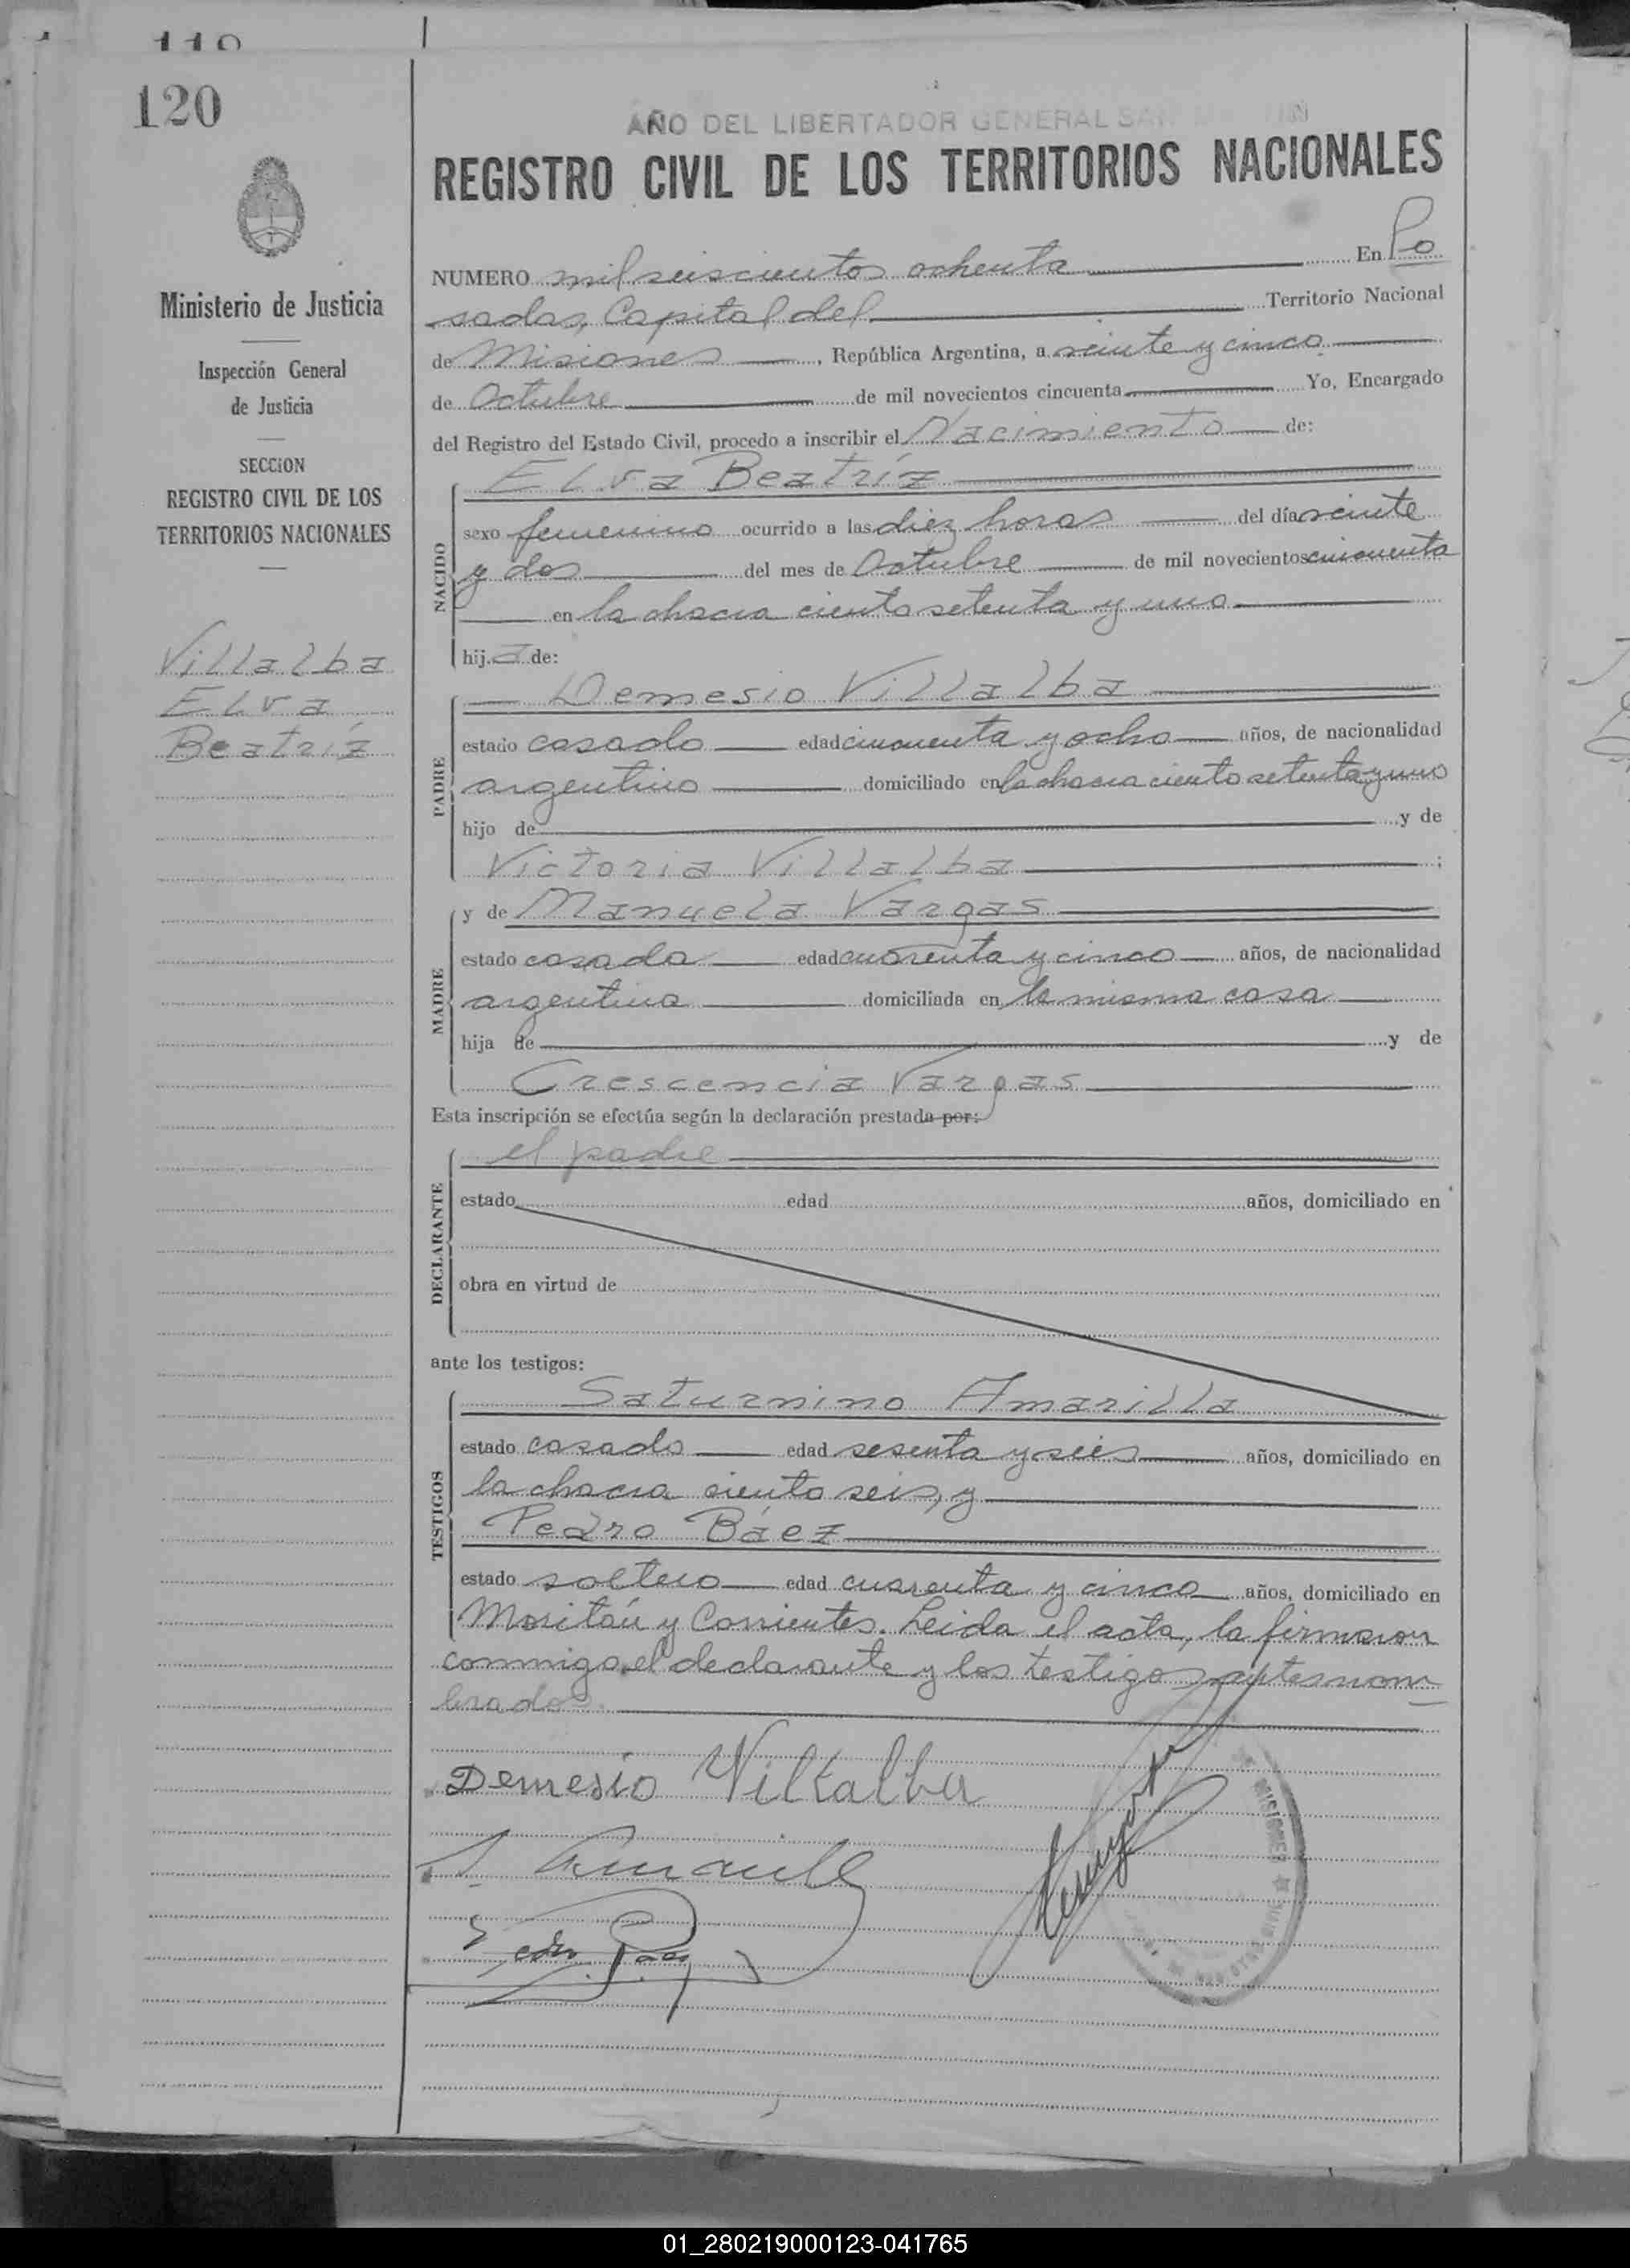 120
Ministerio de Justicia
Inspección General
de Justicia
SECCION
REGISTRO CIVIL DE LOS
TERRITORIOS NACIONALES
Villalba
Elva
Beatríz
AÑO DEL LIBERTADOR GENERAL SAN
REGISTRO CIVIL DE LOS TERRITORIOS NACIONALES
NUMERO mil seiscientos ochenta En Po
sadas, Capital del Territorio Nacional
de Misiones, República Argentina, a veinte y cinco
de Octubre de mil novecientos cincuenta Yo, Encargado
del Registro del Estado Civil, procedo a inscribir el Nacimiento de:
NACIDO
Elva Beatríz
sexo femenino ocurrido a las diez horas del día veinte
y dos del mes de Octubre de mil novecientos cincuenta
en la chacra ciento setenta y uno
hija de:
PADRE
Demesio Villalba
estado casado edad cincuenta y ocho años, de nacionalidad
argentino domiciliado en la chacra ciento setenta y uno
hijo de y de
Victoria Villalba ;
MADRE
y de Manuela Vargas
estado casada edad cuarenta y cinco años, de nacionalidad
argentina domiciliada en la misma casa
hija de y de
Crescencia Vargas
Esta inscripción se efectúa según la declaración prestada por:
DECLARANTE
el padre
estado edad años, domiciliado en
obra en virtud de
ante los testigos:
TESTIGOS
Saturnino Amarilla
estado casado edad sesenta y seis años, domiciliado en
la chacra ciento seis, y
Pedro Báez
estado soltero edad cuarenta y cinco años, domiciliado en
y Corrientes. Leida el acta, la firmaron
conmigo, el declarante y los testigos antesnom
brados.
Demesio Villalba
S. Amarilla
Pedro Báez
MISIONES
01_280219000123-041765